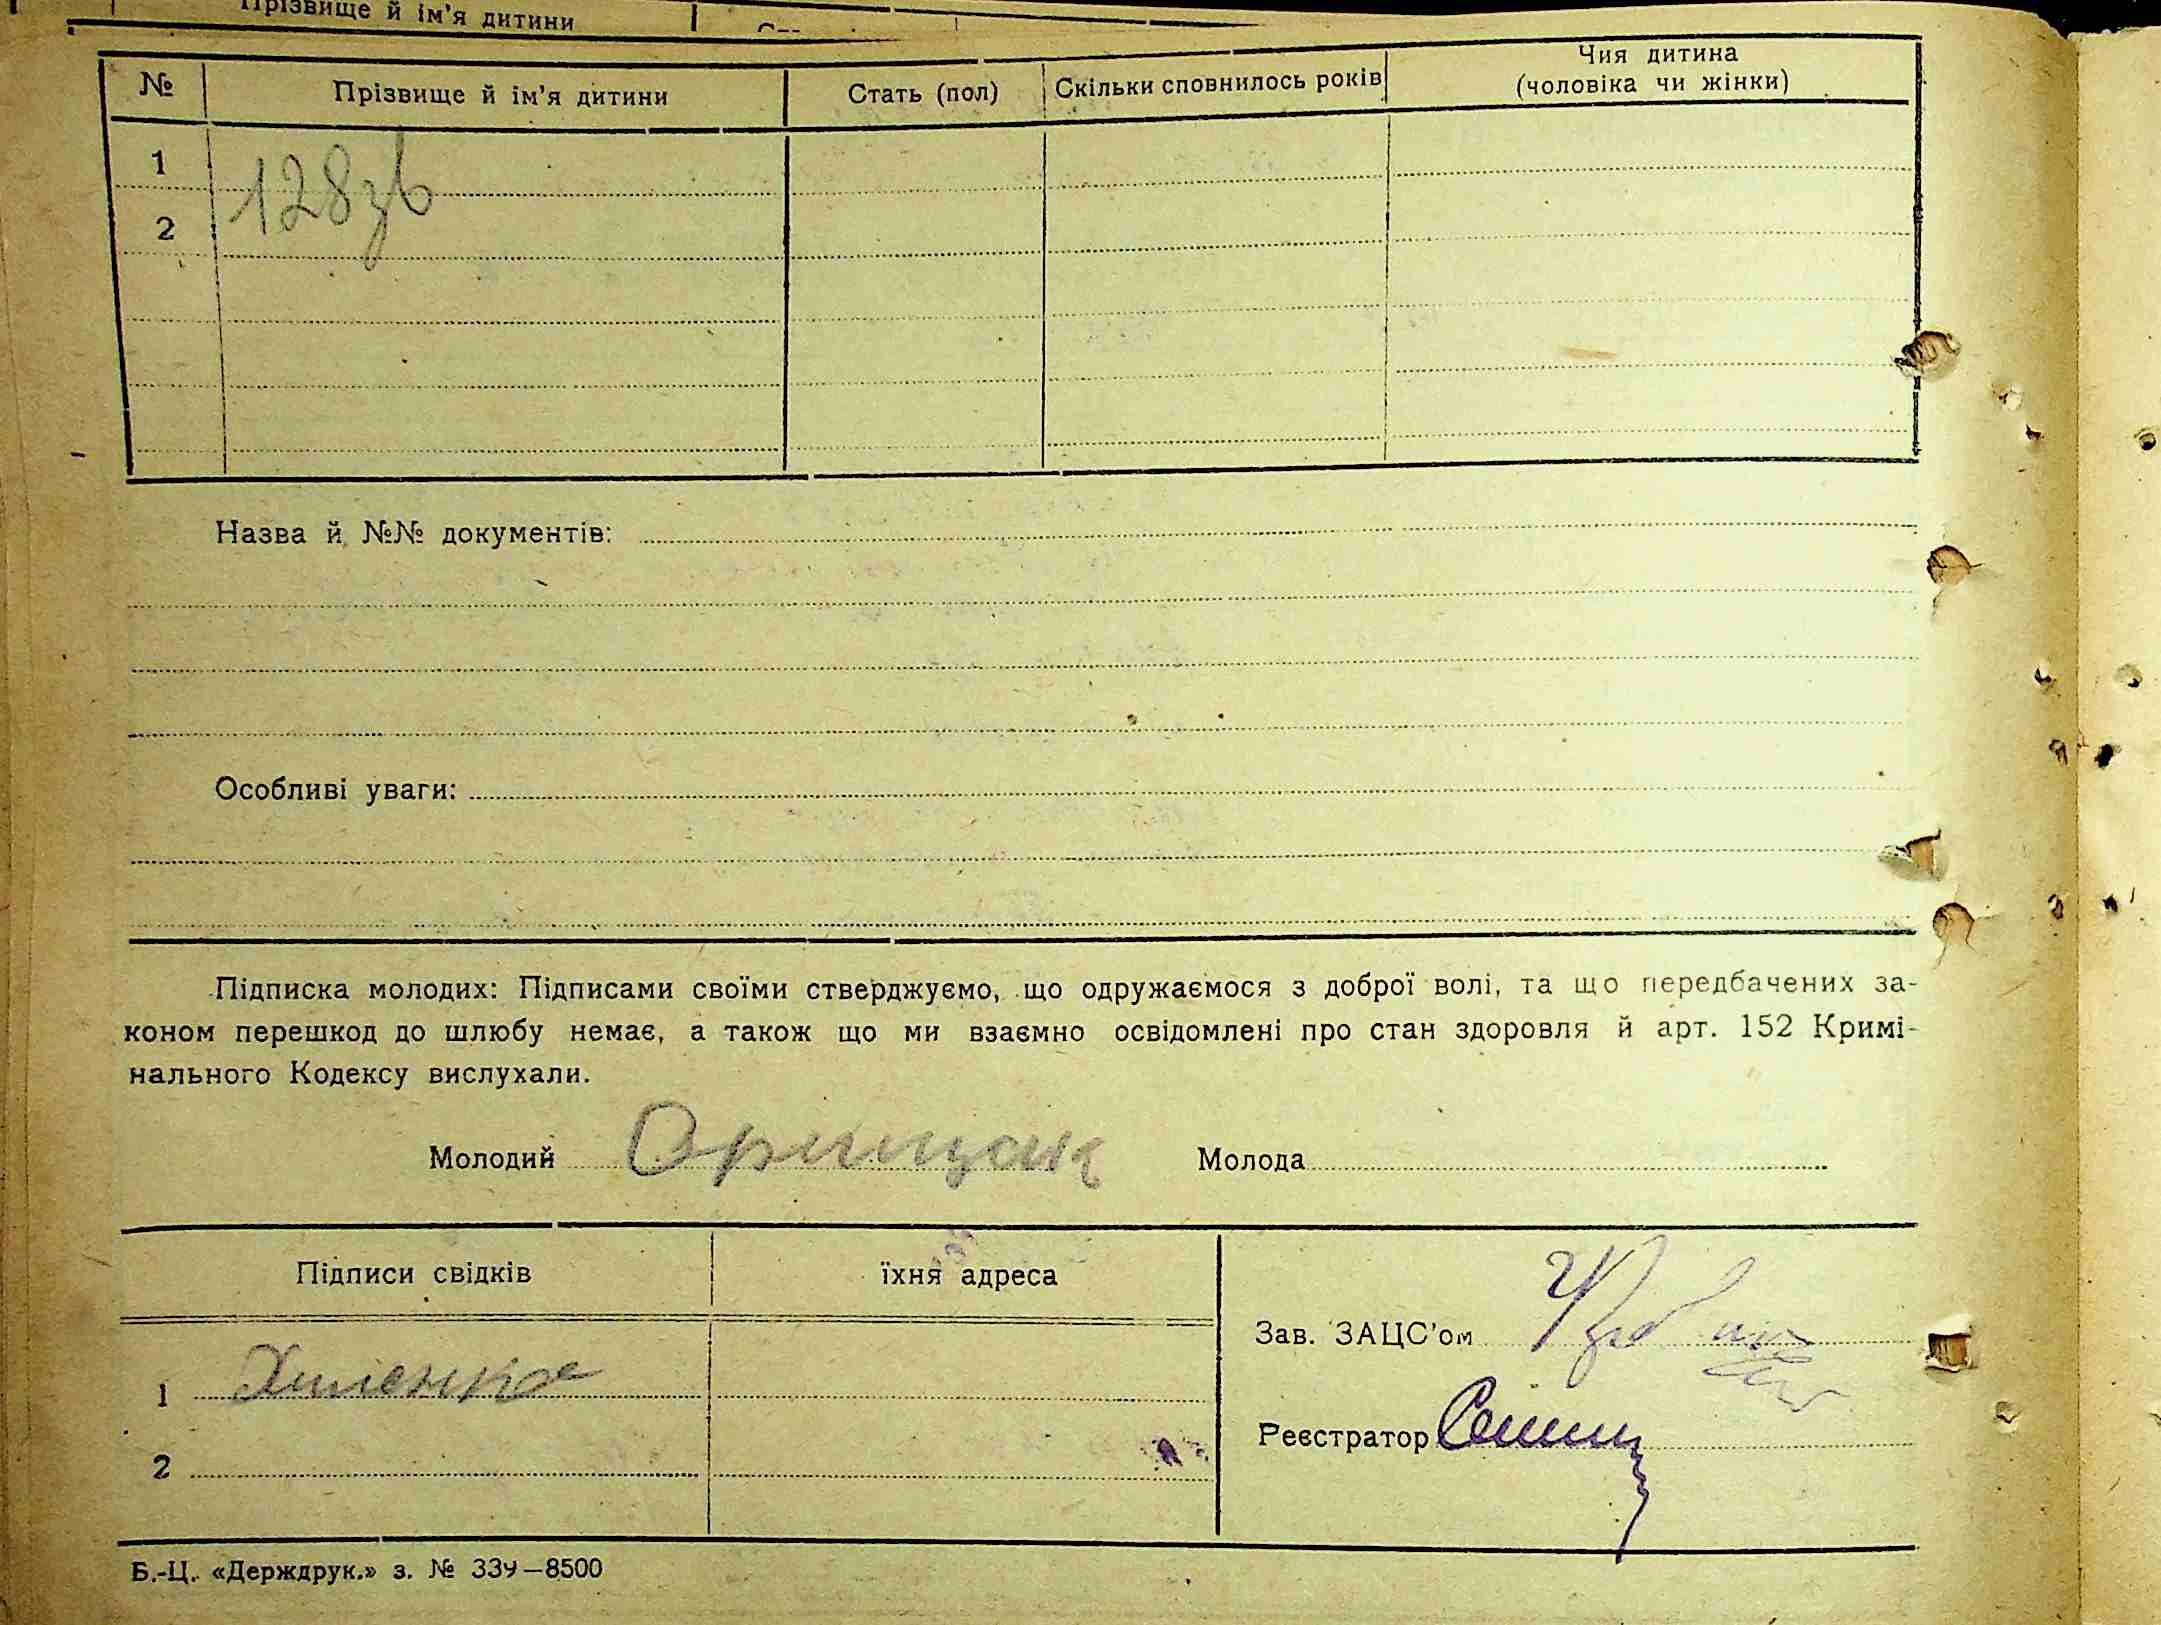 Прізвище й ім'я дитини
№ Прізвище й ім'я дитини Стать (пол) Скільки сповнилось років Чия дитина (чоловіка чи жінки)
1
128зв
2
Назва й №№ документів:
Особливі уваги:
Підписка молодих: Підписами своїми стверджуємо, що одружаємося з доброї волі, та що передбачених за-
коном перешкод до шлюбу немає, а також що ми взаємно освідомлені про стан здоровля й арт. 152 Кримі-
нального Кодексу вислухали.
Молодий Орищак Молода
Підписи свідків їхня адреса
Зав. ЗАЦС'ом
1
Реєстратор
2
Б.-Ц. «Держдрук.» з. № 339—8500